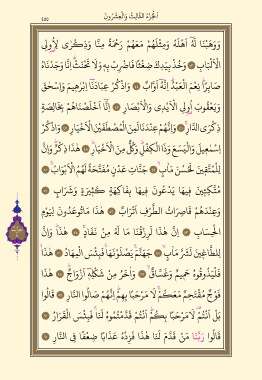 الجزء الثالث والعشرون
٤٥٥
ووهبنا له أهله ومثلهم معهم رحمة منا وذكرى لأولي
الألباب ٤٣ وخذ بيدك ضغثا فاضرب به ولا تحنث إنا وجدناه
صابرا نعم العبد إنه أواب ٤٤ واذكر عبادنا إبرهيم وإسحق
ويعقوب أولي الأيدي والأبصار ٤٥ إنا أخلصناهم بخالصة
ذكرى الدار ٤٦ وإنهم عندنا لمن المصطفين الأخيار ٤٧ واذكر
إسمعيل واليسع وذا الكفل وكل من الأخيار ٤٨ هذا ذكر وإن
للمتقين لحسن مآب ٤٩ جنات عدن مفتحة لهم الأبواب ٥٠
متكئين فيها يدعون فيها بفاكهة كثيرة وشراب ٥١
وعندهم قاصرات الطرف أتراب ٥٢ هذا ما توعدون ليوم
الحساب ٥٣ إن هذا لرزقنا ما له من نفاد ٥٤ هذا وإن
للطاغين لشر مآب ٥٥ جهنم يصلونها فبئس المهاد ٥٦ هذا
فليذوقوه حميم وغساق ٥٧ وآخر من شكله أزواج ٥٨ هذا
فوج مقتحم معكم لا مرحبا بهم إنهم صالوا النار ٥٩ قالوا
بل أنتم لا مرحبا بكم أنتم قدمتموه لنا فبئس القرار ٦٠
قالوا ربنا من قدم لنا هذا فزده عذابا ضعفا في النار ٦١